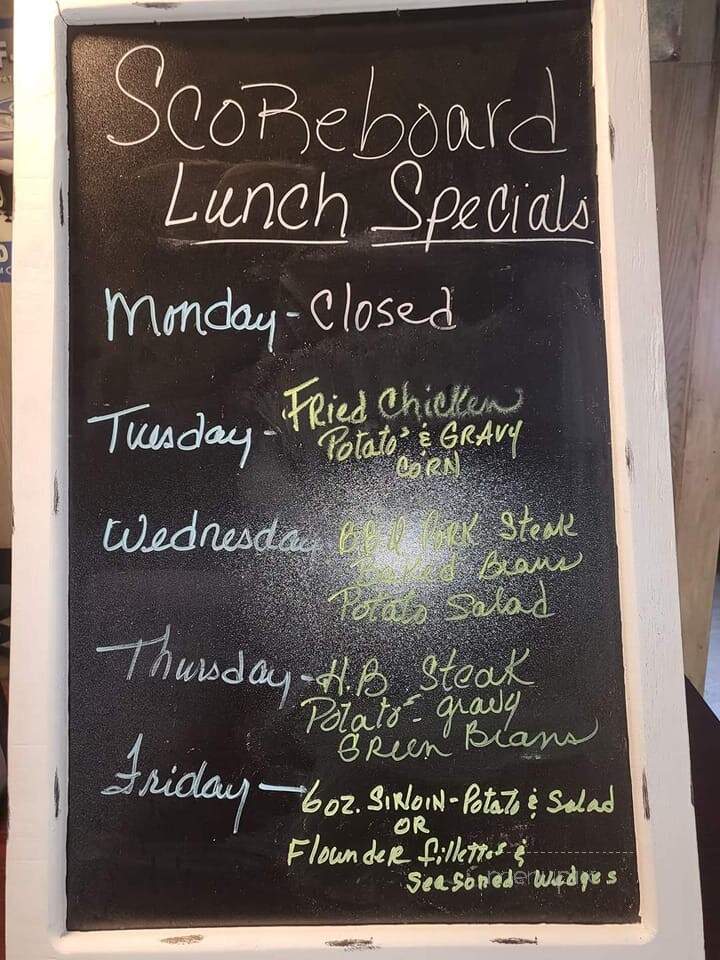 ScoReboard
Lunch Specials
Monday - Closed
Tuesday - FRied Chicken
Potato's & GRAVY
CORN
Wednesday BBQ PORK Steak
Baked Beans
Potato Salad
Thursday - H.B. Steak
Potato's - gravy
GReen Beans
Friday - 6oz. SIRloIN - Potato & Salad
OR
FloundeR fillettes &
SeaSoned wedges